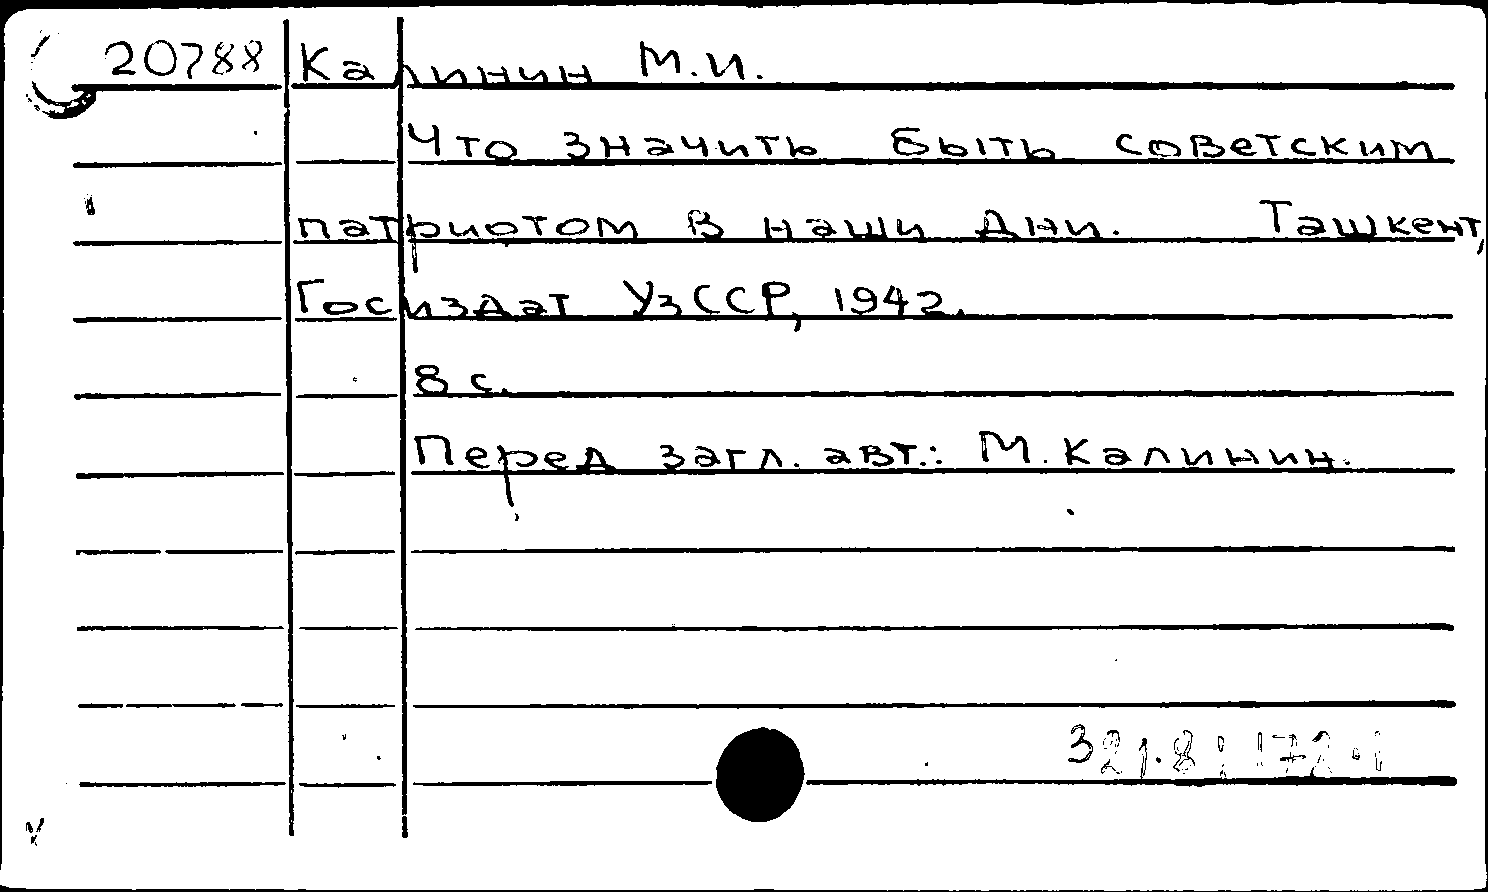 20788 Калинин М.И.
Что значить быть советским
патриотом в наши дни. Ташкент,
Госиздат УзССР, 1942.
8 с.
Перед загл. авт.: М. Калинин.
321.8:172.1